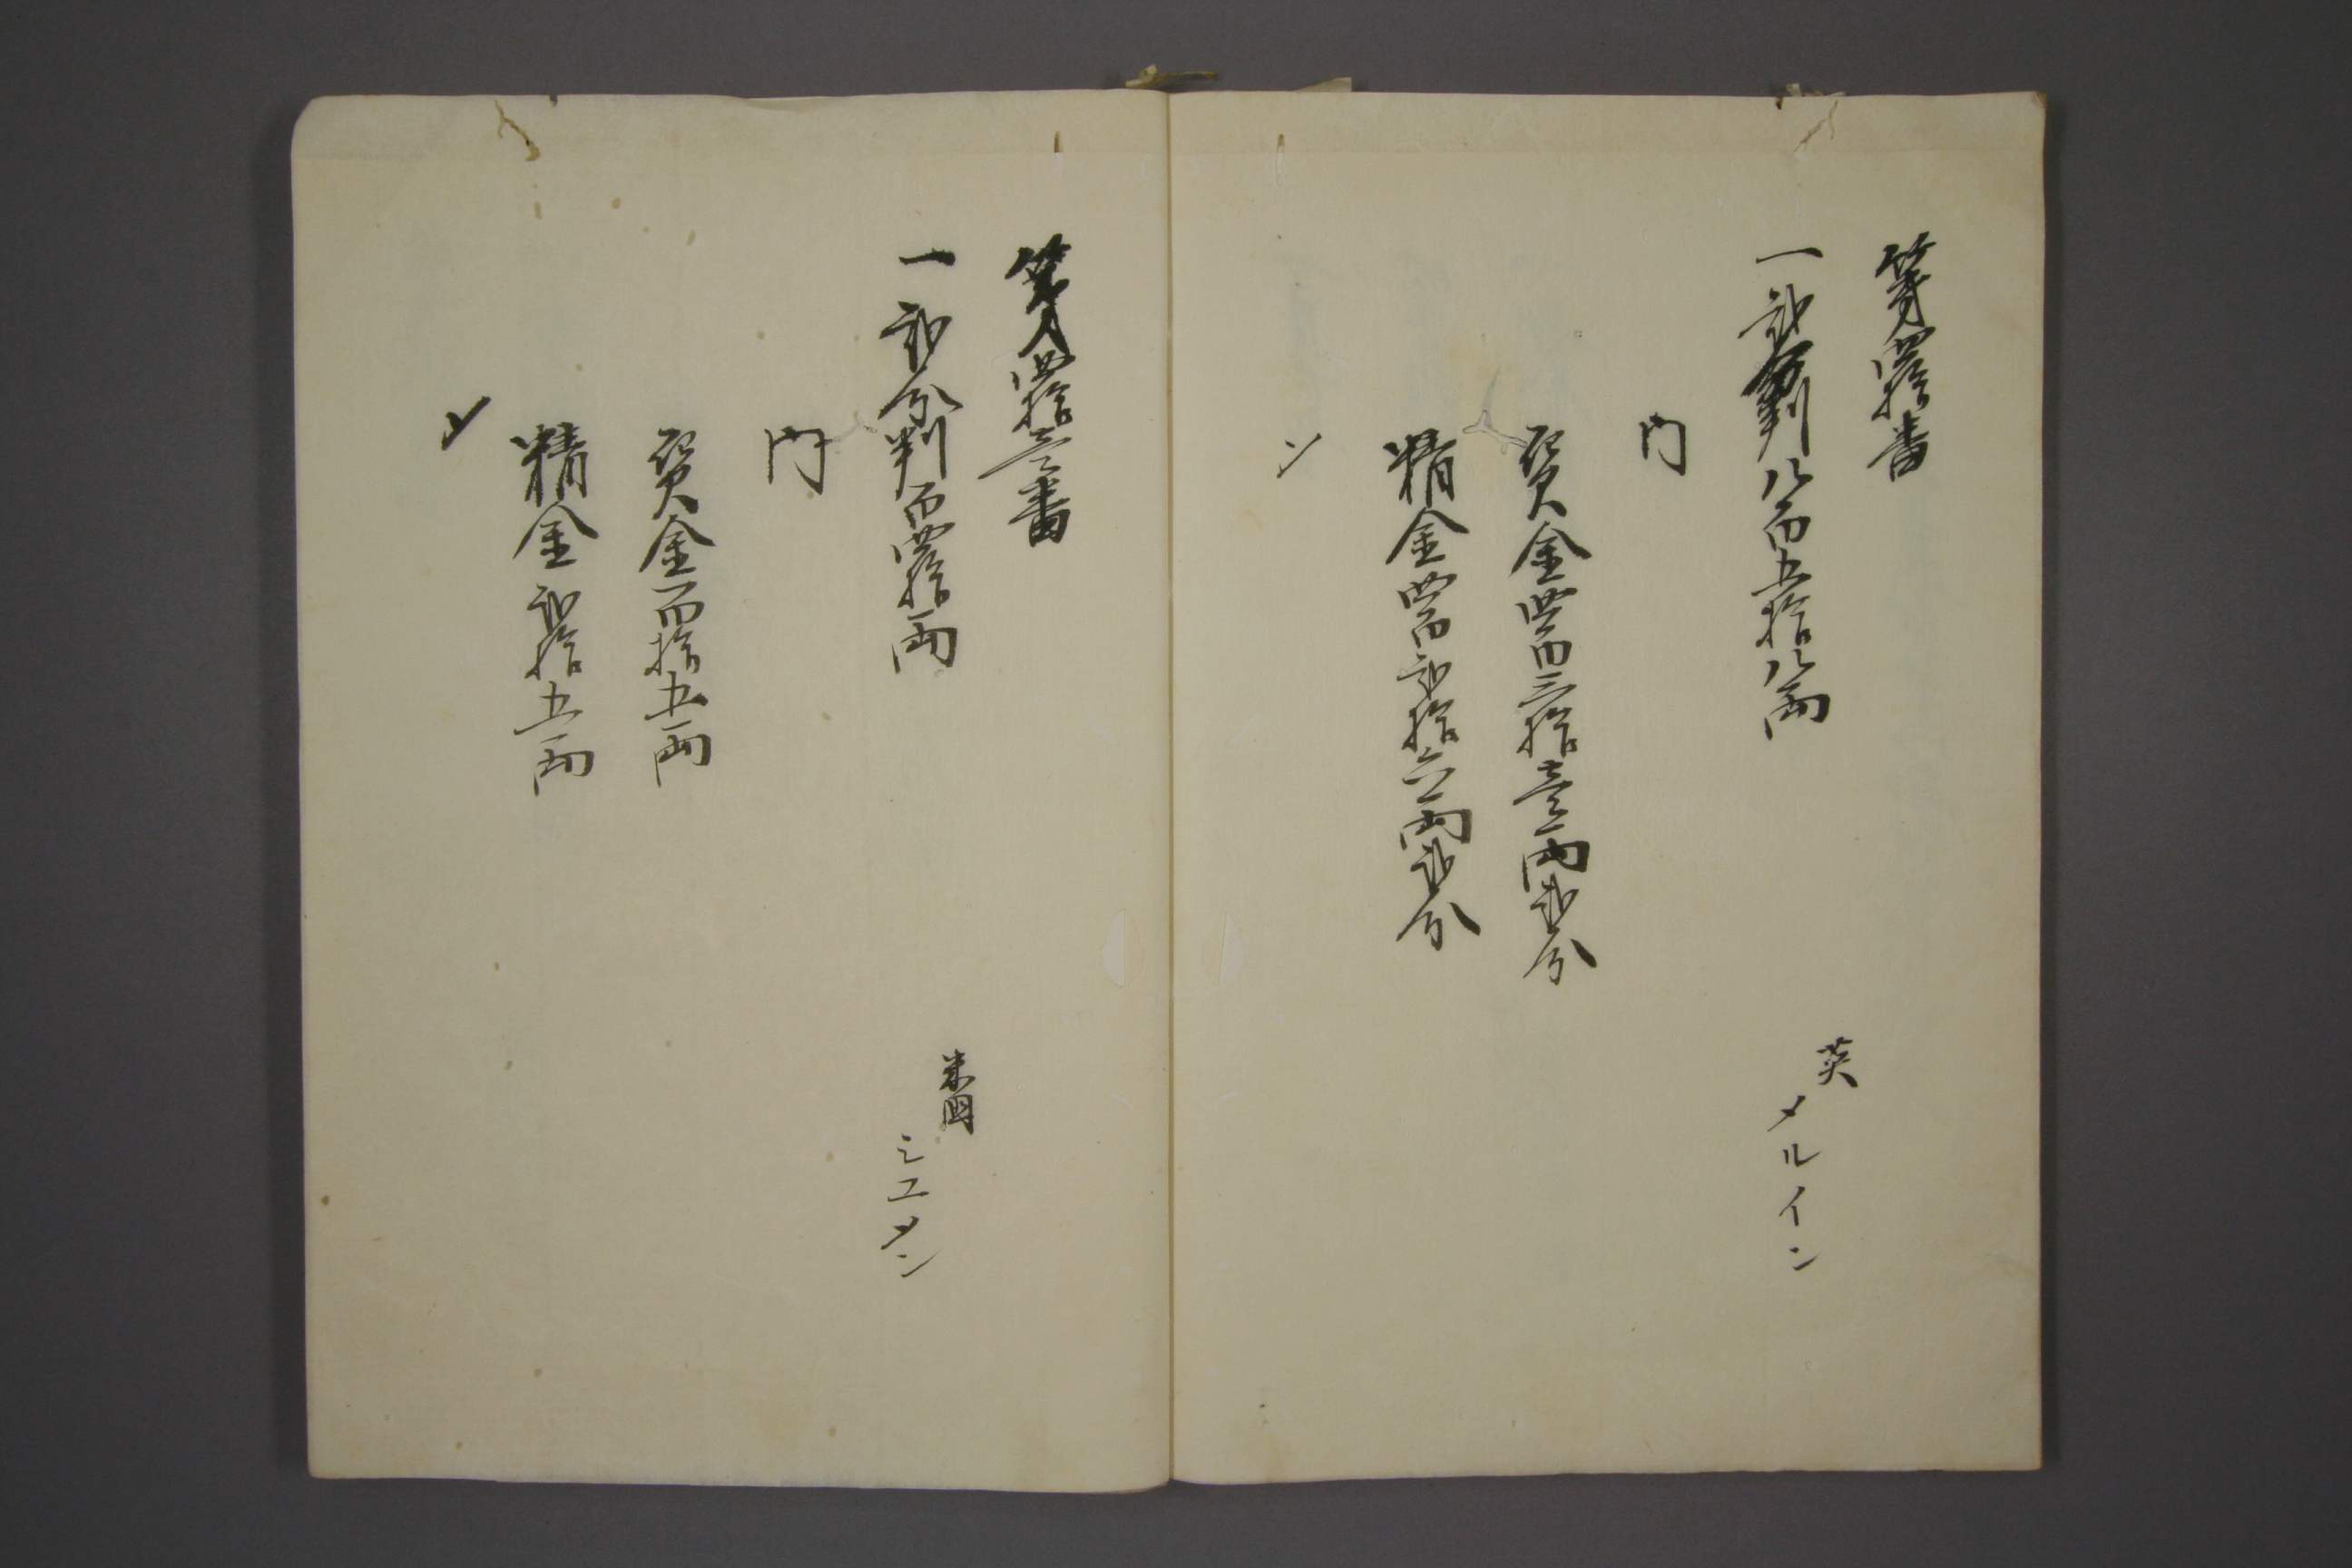 第四拾番
一弐分判八百五拾八両
英
メルイン
内
贋金四百三拾壱両弐分
精金四百弐拾六両弐分
〆
第四拾壱番
一弐分判百四拾両
米国
シユメン
内
贋金百拾五両
精金弐拾五両
〆